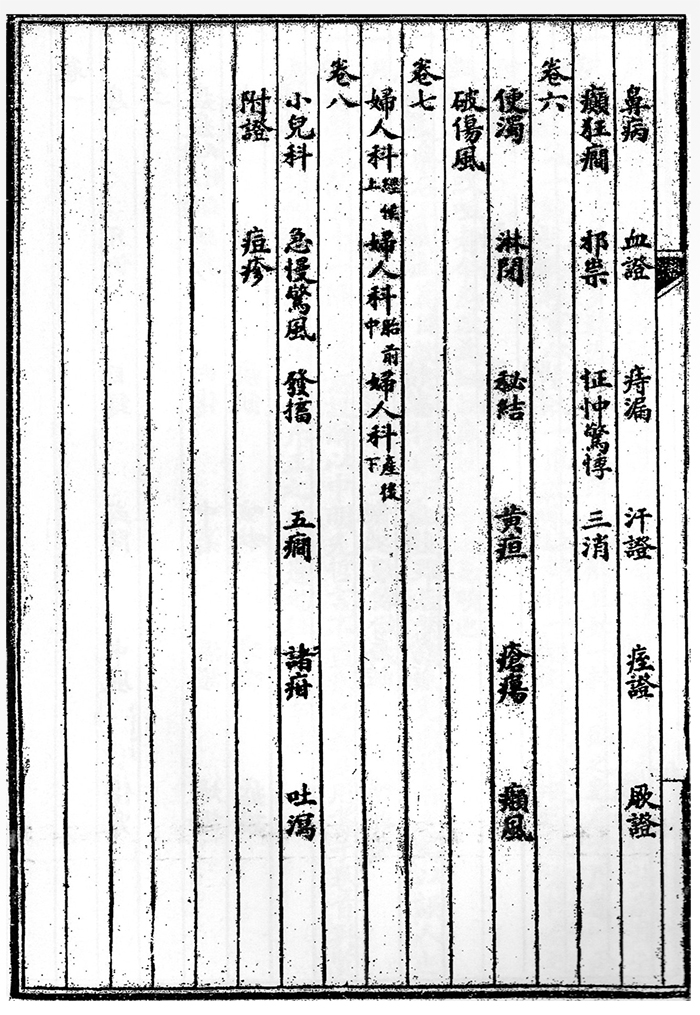 鼻病 血證 痔漏 汗證 痓證 厥證
癲狂癎 邪祟 怔忡驚悸 三消
卷六
便濁 淋閉 秘結 黄疸 瘡瘍 癩風
破傷風
卷七
婦人科上經候 婦人科中胎前 婦人科下產後
卷八
小兒科 急慢驚風 發搐 五癎 諸疳 吐瀉
附證 痘疹